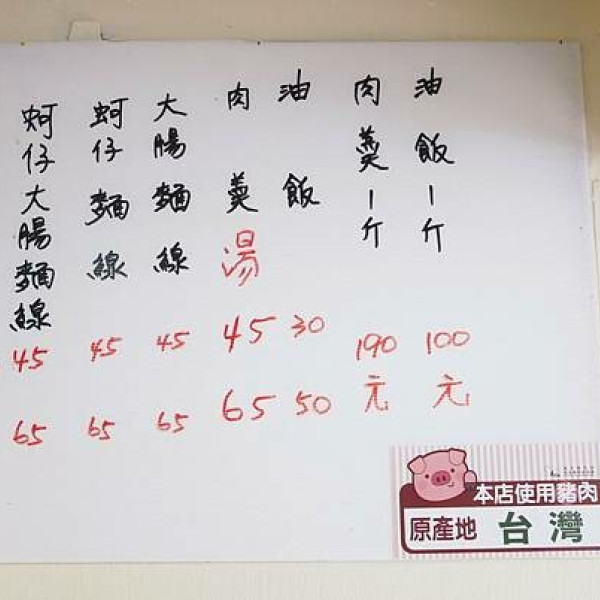 油飯一斤 100元
肉羹一斤 190元
油飯 30 50
肉羹湯 45 65
大腸麵線 45 65
蚵仔麵線 45 65
蚵仔大腸麵線 45 65
本店使用豬肉
原產地 台灣